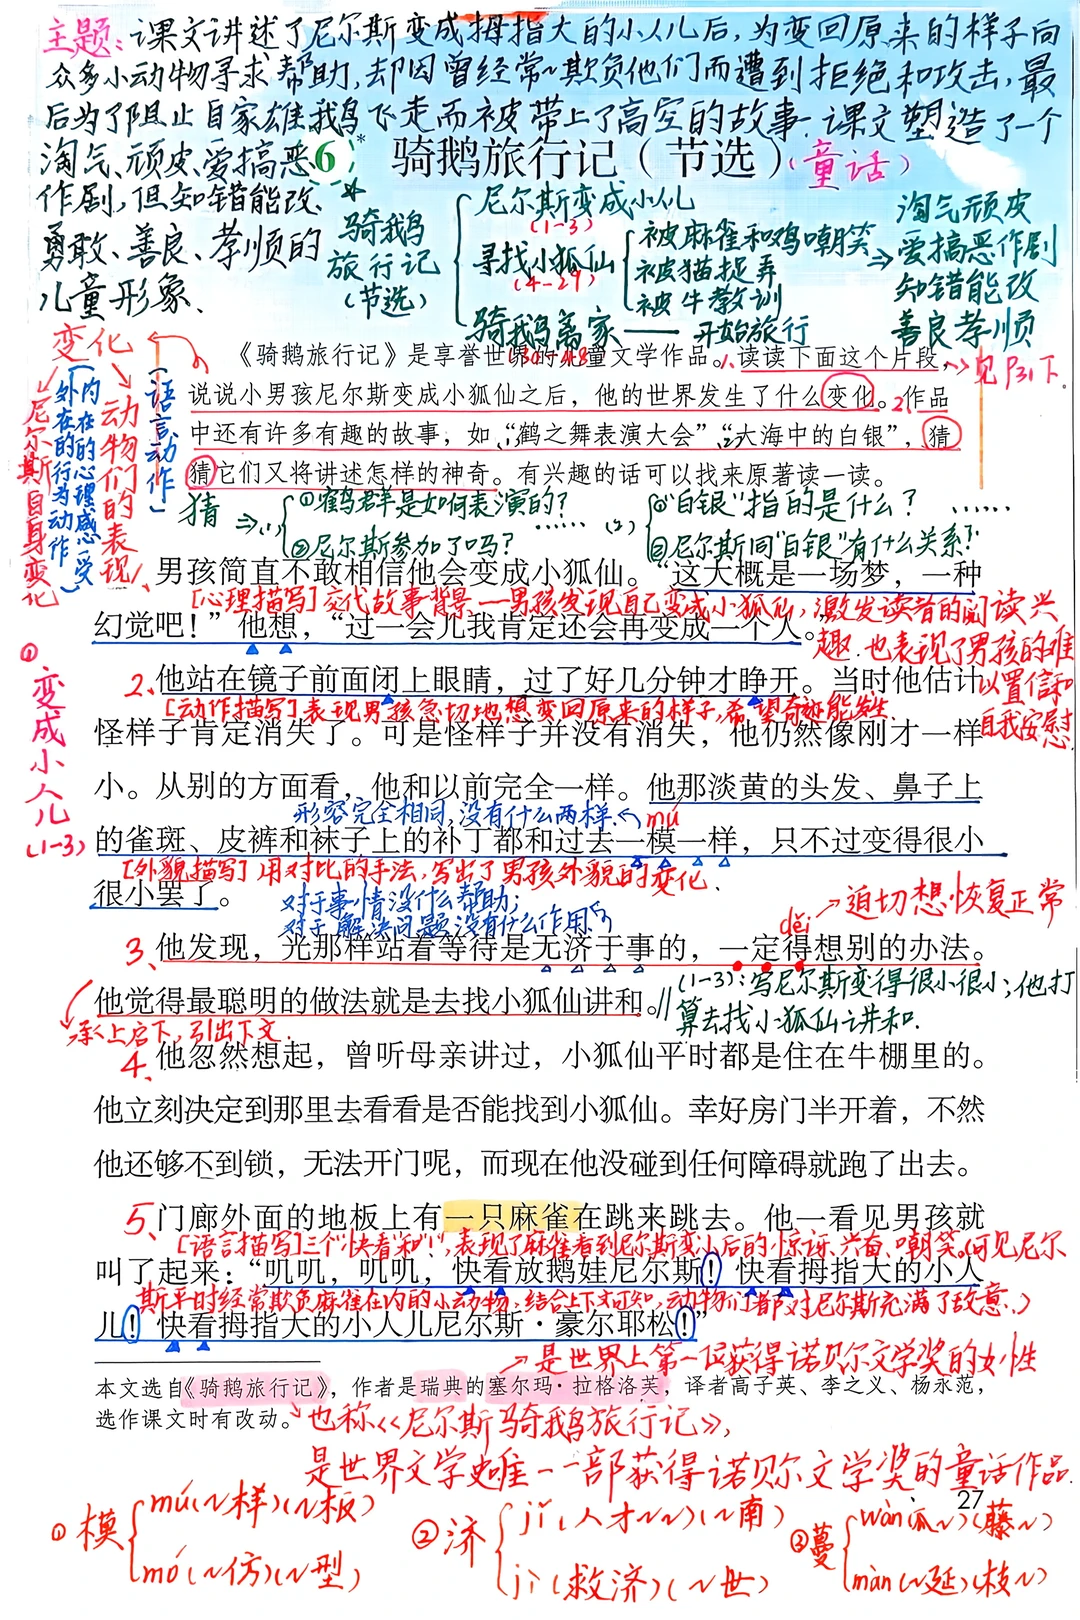 主题:课文讲述了尼尔斯变成拇指大的小人儿后,为变回原来的样子向
众多小动物寻求帮助,却因曾经常欺负他们而遭到拒绝和攻击,最
后为了阻止自家雄鹅飞走而被带上了高空的故事.课文塑造了一个
淘气、顽皮、爱搞恶
作剧,但知错能改、
勇敢、善良、孝顺的
儿童形象.
6*
骑鹅旅行记(节选)(童话)
骑鹅
旅行记
(节选)
尼尔斯变成小人儿
(1-3)
寻找小狐仙
(4-29)
被麻雀和鸡嘲笑
被猫捉弄
被牛教训
骑鹅离家——开始旅行
(30-48)
淘气顽皮
爱搞恶作剧
知错能改
善良孝顺
变化
(语言动作)
动物们的表现
(内在的心理感受
外在的行为动作)
尼尔斯自身变化
《骑鹅旅行记》是享誉世界的儿童文学作品。1.读读下面这个片段,
→见P31下
说说小男孩尼尔斯变成小狐仙之后,他的世界发生了什么变化。2.作品
中还有许多有趣的故事,如“鹤之舞表演大会”“大海中的白银”,猜
猜它们又将讲述怎样的神奇。有兴趣的话可以找来原著读一读。
猜⇒(1)
①鹤群是如何表演的?
②尼尔斯参加了吗?
……(2)
①“白银”指的是什么?
②尼尔斯同“白银”有什么关系?
……
1、男孩简直不敢相信他会变成小狐仙。“这大概是一场梦,一种
[心理描写]交代故事背景——男孩发现自己变成小狐仙,激发读者的阅读兴
趣.也表现了男孩的难
以置信和
自我安慰
幻觉吧!”他想,“过一会儿我肯定还会再变成一个人。”
①变成小人儿
(1-3)
2、他站在镜子前面闭上眼睛,过了好几分钟才睁开。当时他估计
[动作描写]表现男孩急切地想变回原来的样子,希望奇迹能发生.
怪样子肯定消失了。可是怪样子并没有消失,他仍然像刚才一样
小。从别的方面看,他和以前完全一样。他那淡黄的头发、鼻子上
形容完全相同,没有什么两样.
mú
的雀斑、皮裤和袜子上的补丁都和过去一模一样,只不过变得很小
[外貌描写]用对比的手法,写出了男孩外貌的变化.
很小罢了。
对于事情没什么帮助;
对于解决问题没有什么作用
děi
→迫切想恢复正常
3、他发现,光那样站着等待是无济于事的,一定得想别的办法。
他觉得最聪明的做法就是去找小狐仙讲和。
(1-3):写尼尔斯变得很小很小;他打
算去找小狐仙讲和.
承上启下,引出下文.
4、他忽然想起,曾听母亲讲过,小狐仙平时都是住在牛棚里的。
他立刻决定到那里去看看是否能找到小狐仙。幸好房门半开着,不然
他还够不到锁,无法开门呢,而现在他没碰到任何障碍就跑了出去。
5、门廊外面的地板上有一只麻雀在跳来跳去。他一看见男孩就
[语言描写]三个“快看”和“!”,表现了麻雀看到尼尔斯变小后的惊讶、兴奋、嘲笑。(可见尼尔
叫了起来:“叽叽,叽叽,快看放鹅娃尼尔斯!快看拇指大的小人
斯平时经常欺负麻雀在内的小动物.结合上下文可知,动物们都对尼尔斯充满了敌意.)
儿!快看拇指大的小人儿尼尔斯·豪尔耶松!”
→是世界上第一位获得诺贝尔文学奖的女性
本文选自《骑鹅旅行记》,作者是瑞典的塞尔玛·拉格洛芙,译者高子英、李之义、杨永范,
选作课文时有改动。
也称《尼尔斯骑鹅旅行记》,
是世界文学史唯一一部获得诺贝尔文学奖的童话作品.
27
①模
mú(~样)(~板)
mó(~仿)(~型)
②济
jǐ(人才~~)(~南)
jì(救济)(~世)
③蔓
wàn(瓜~)(藤~)
màn(~延)(枝~)